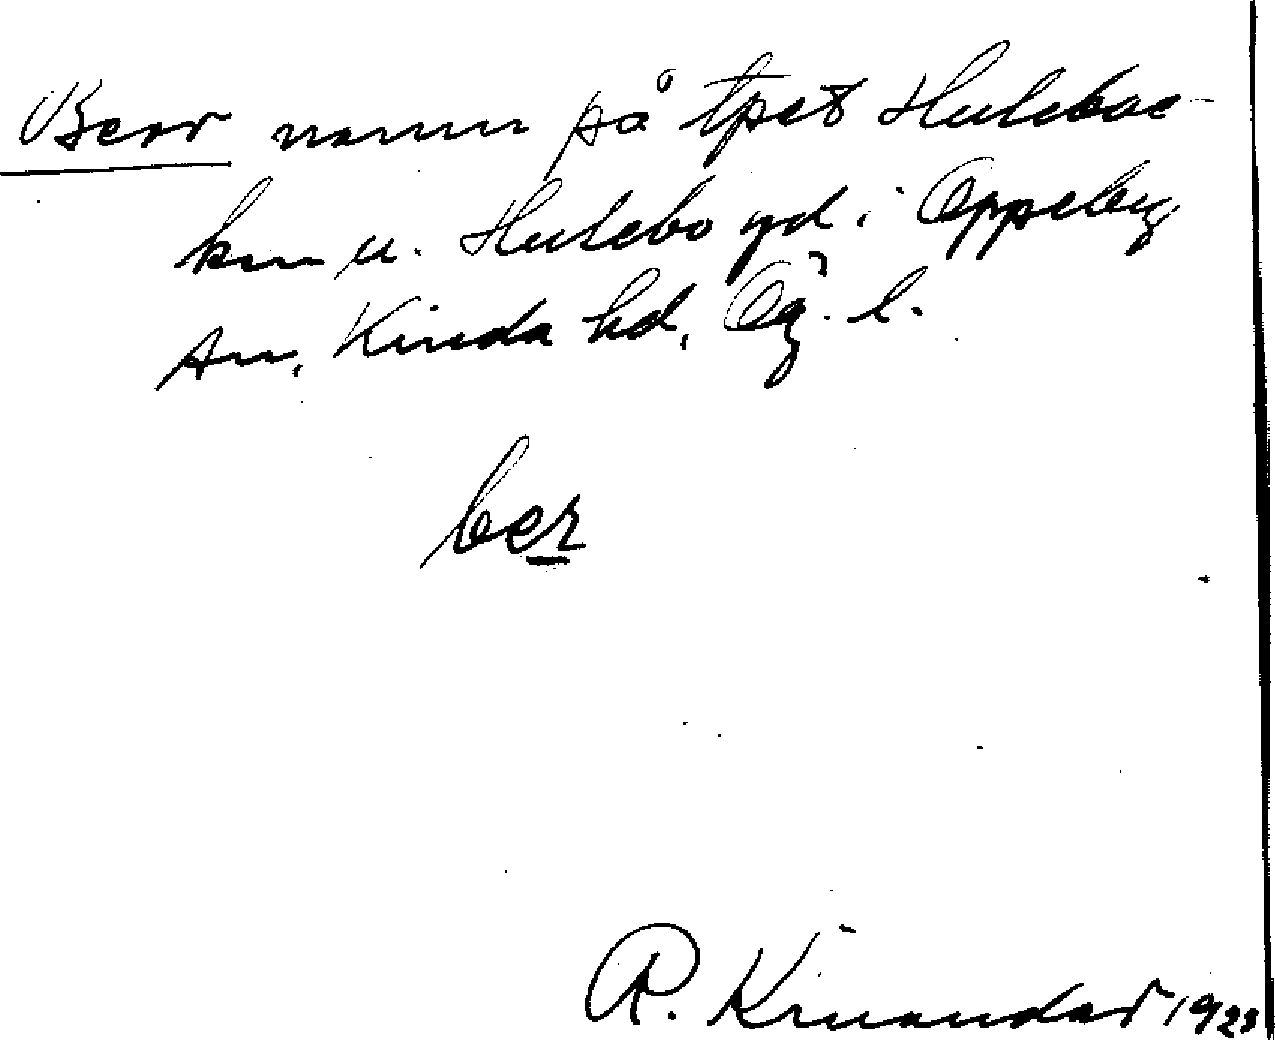 Berr namn på tpet Hulebac-
ken u. Hulebo gd. i Oppeby
sn, Kinda hd, Ög. l.
ber
R. Kinander 1923